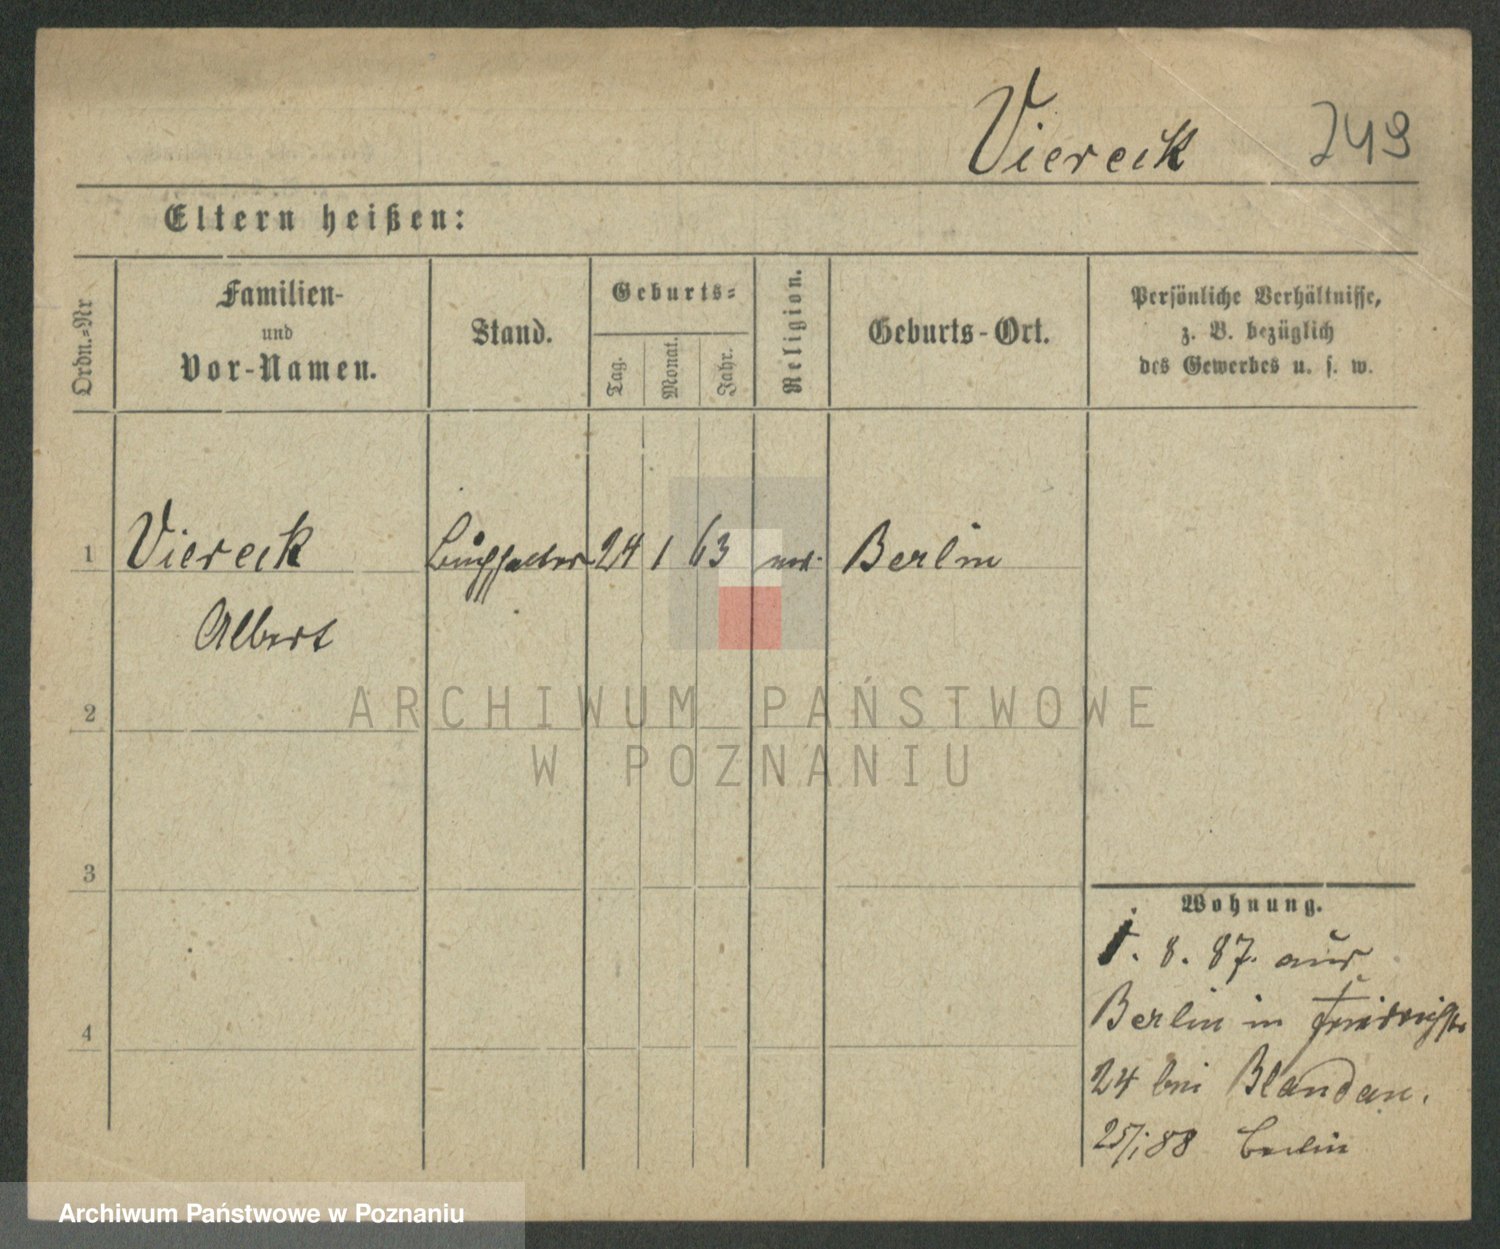 Viereck 249
Eltern heißen:
Ordn.-Nr
Familien-
und
Vor-Namen.
Stand.
Geburts-
Tag.
Monat.
Jahr.
Religion.
Geburts-Ort.
Persönliche Verhältnisse,
z. B. bezüglich
des Gewerbes u. s. w.
1 Viereck 24 1 63 Berlin
Albert
2
3
4
Wohnung.
1. 8. 87. aus
Berlin in Friedrichstr
24 bei Blandau.
25/1 88 Berlin
ARCHIWUM PAŃSTWOWE
W POZNANIU
Archiwum Państwowe w Poznaniu